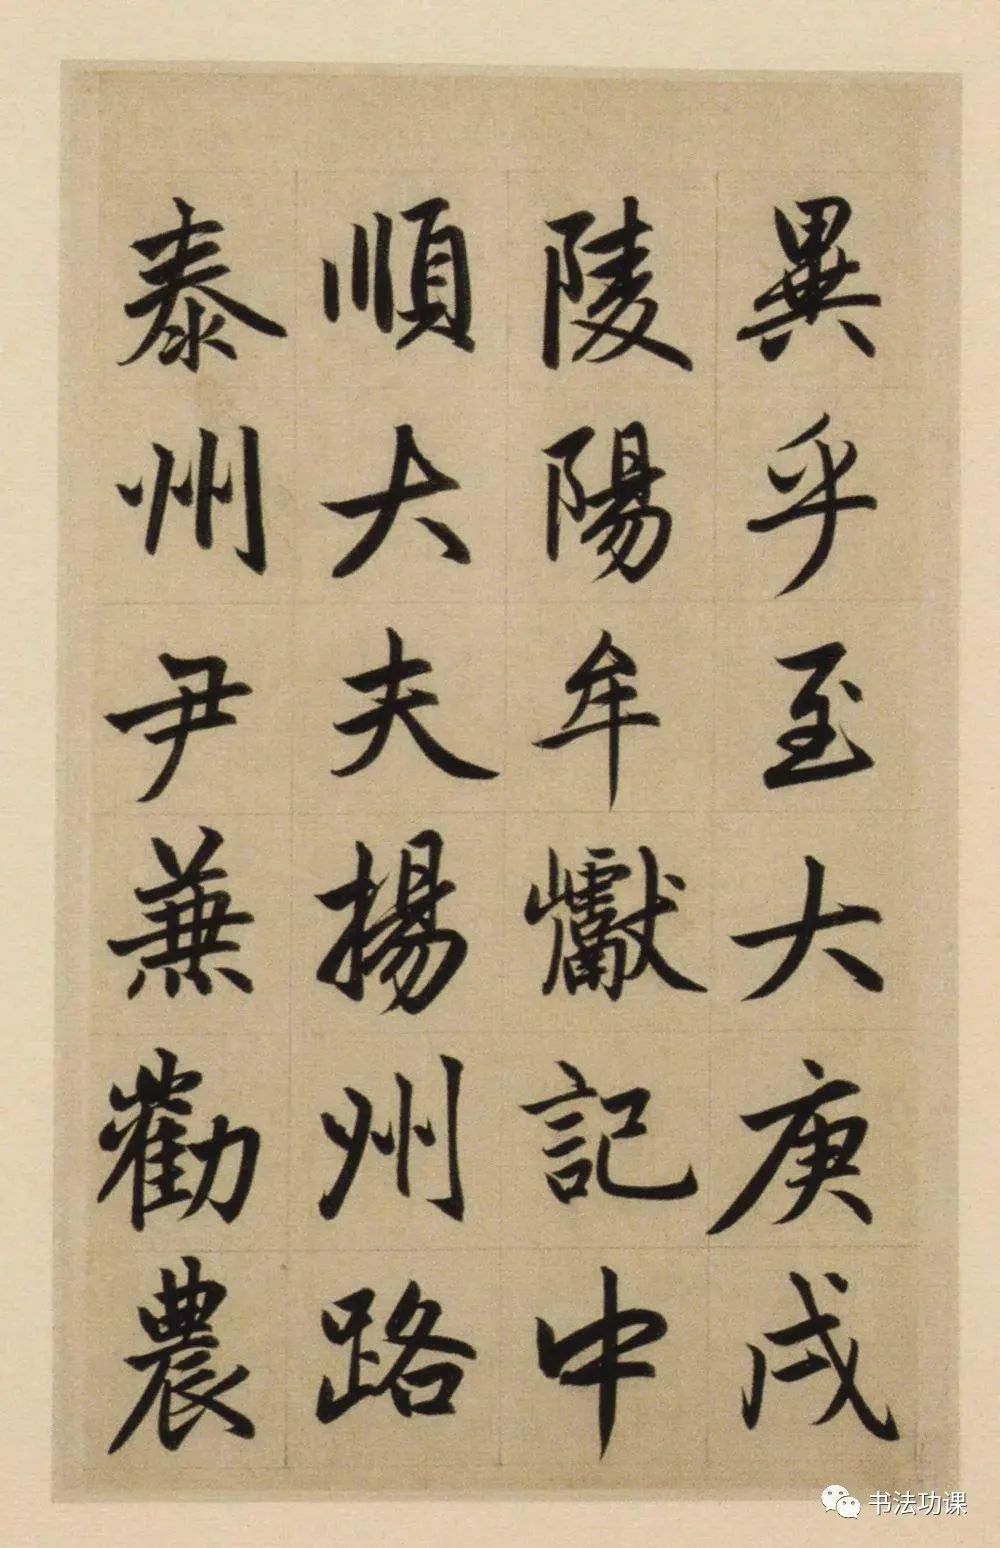 異乎至大庚戌
陵陽牟巘記中
順大夫揚州路
泰州尹兼勸農
书法功课